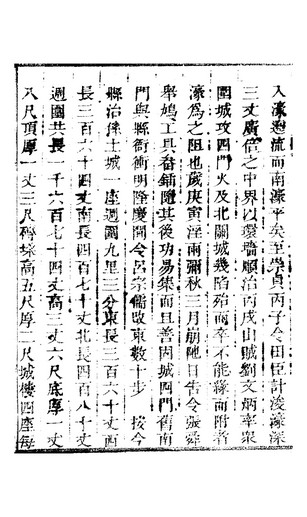 入濠遶流而南濠平矣至崇貞丙子令田臣計浚濠深
三丈廣倍之中界以環墻順治丙戌山賊劉文炳率衆
圍城攻四門火及北關城幾陷殆而卒不能緣而附者
濠爲之阻也歲庚寅淫雨彌秋三月崩陁日告令張舜
舉鳩工具畚鍤隨其後功易集而且善固城四門舊南
門與縣衙衝明隆慶間令呂宗儒改東數十步 按今
縣治係土城一座週圍九里三分東長三百六十丈西
長三百六十四丈南長四百七十丈北長四百八十丈
週圍共長一千六百七十四丈高二丈六尺底厚一丈
八尺頂厚一丈三尺磚垛高五尺厚一尺城樓四座每